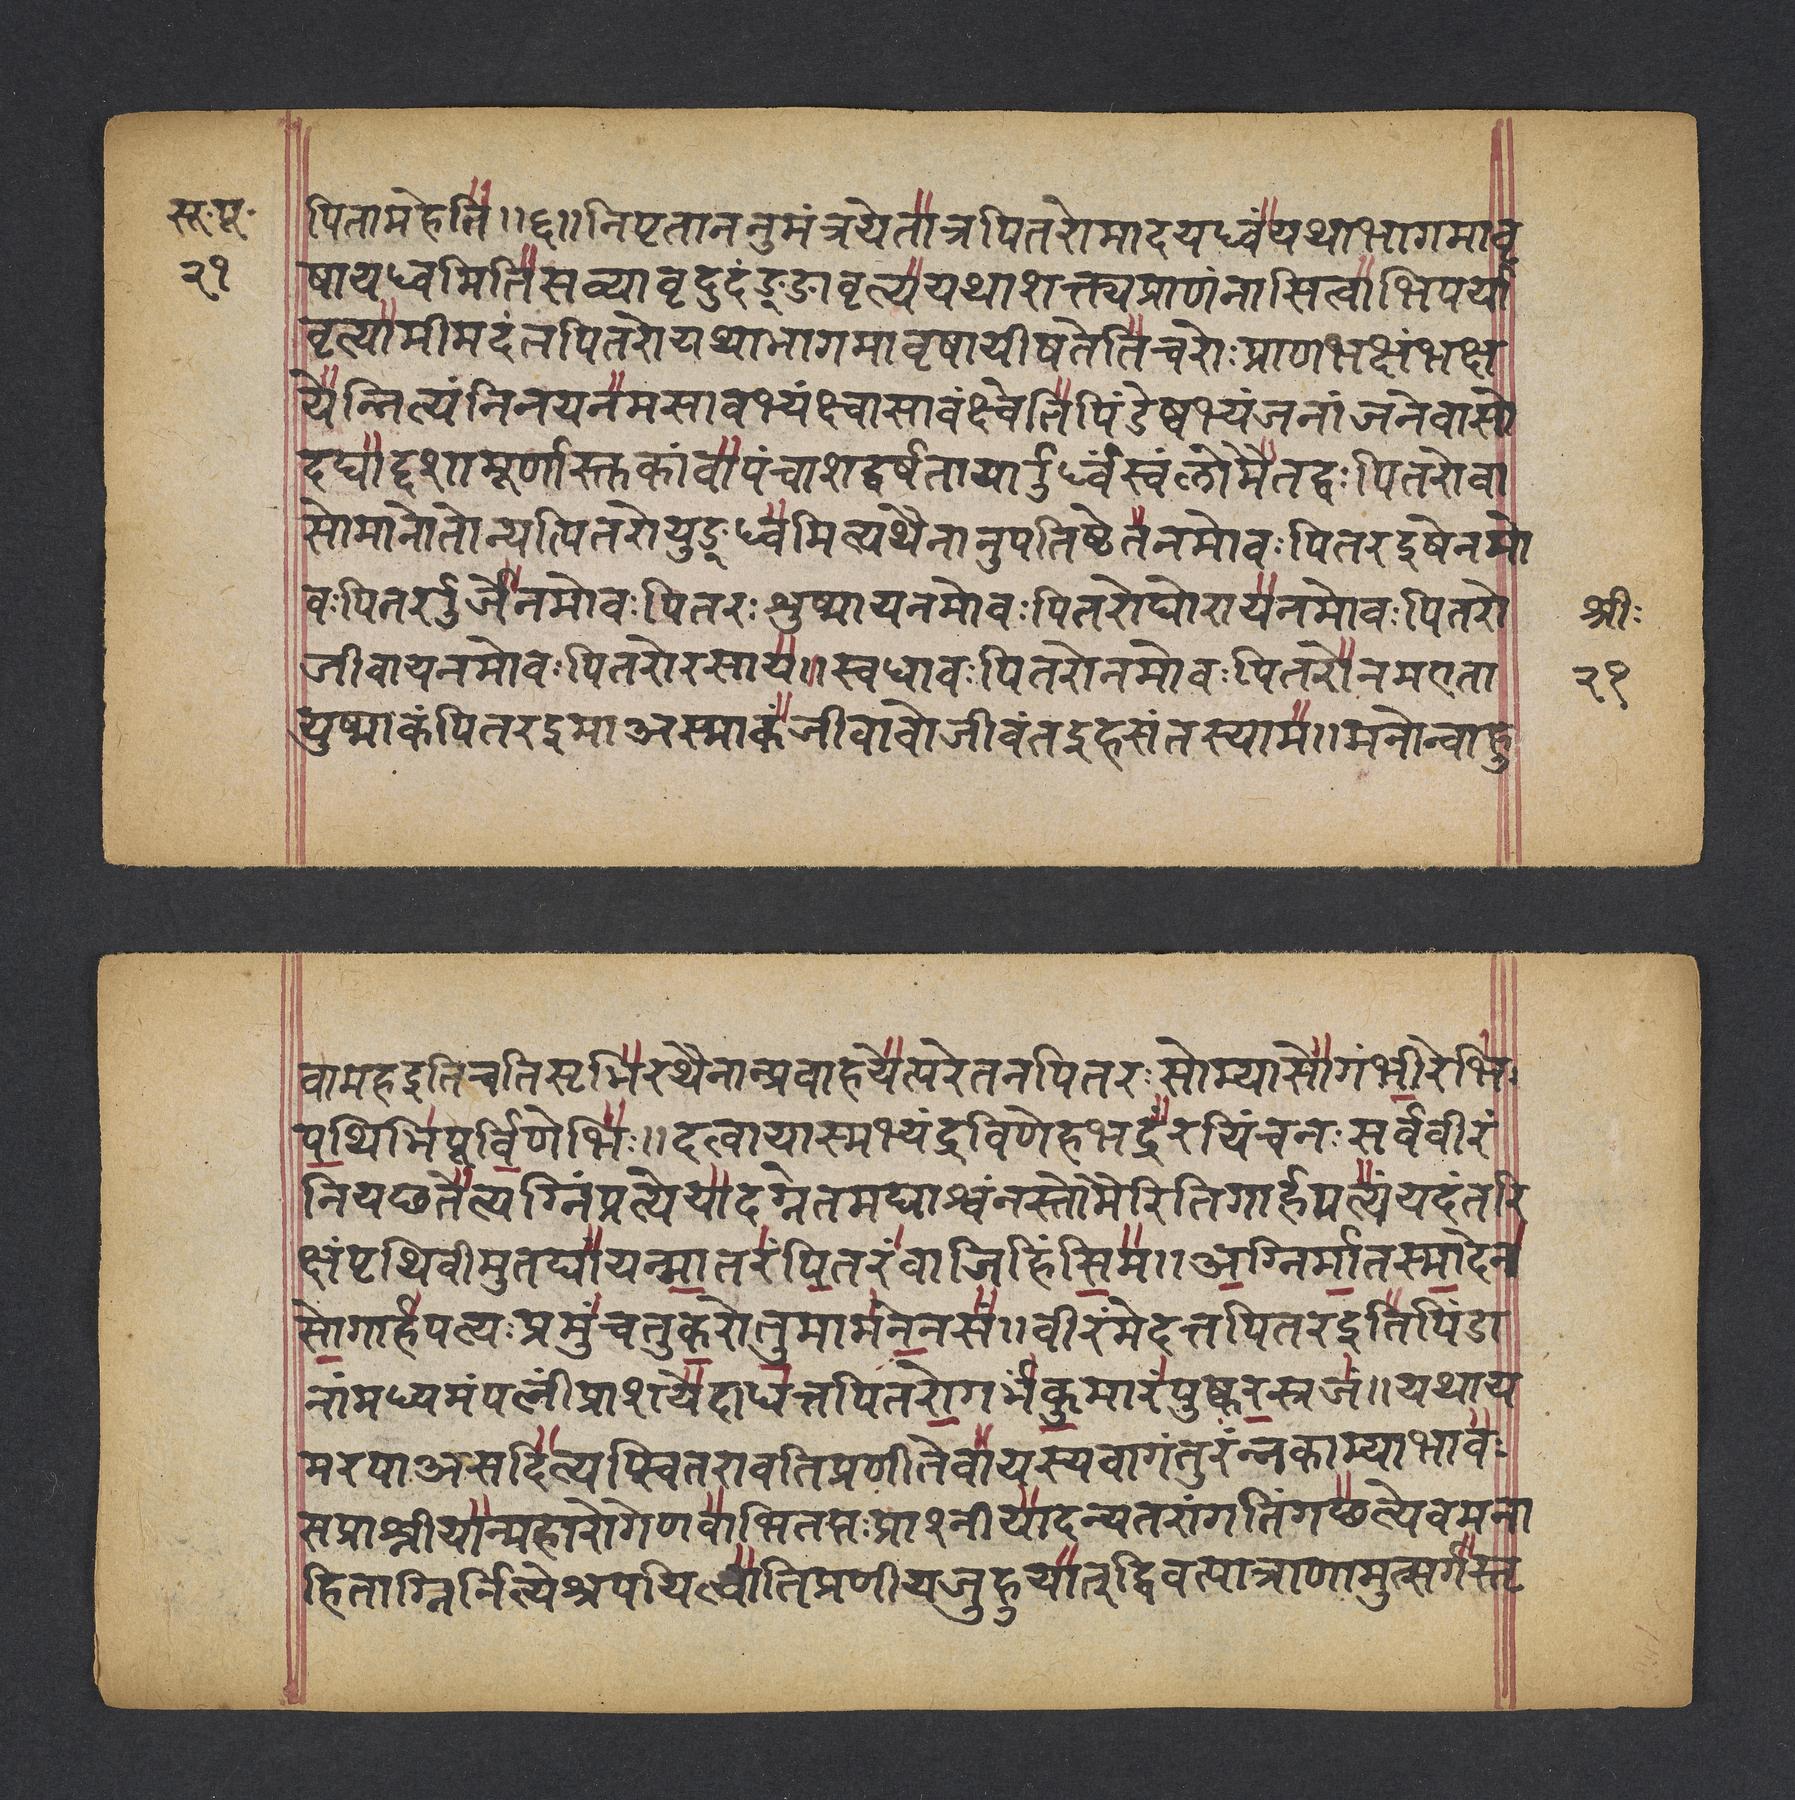 सू॰पू॰
२१
पितामहेति॥६॥निपृताननुमंत्रयेतात्रपितरोमादयध्वंयथाभागमावृ
षायध्वमितिसव्यावृदुदंङ्ङावृत्ययथाशक्त्यप्राणंनासित्वाभिपर्या
वृत्यामीमदंतपितरोयथाभागमावृषायीषतेतिचरोःप्राणभक्षंभक्ष
येन्नित्यंनिनयनमसावभ्यंक्ष्वासावंक्ष्वेतिपिंडेष्वभ्यंजनांजनेवासो
दद्याद्दशामूर्णास्तकांवापंचाशद्वर्षतायाऊर्ध्वंस्वंलोमैतद्वःपितरोवा
सोमानोतोन्यत्पितरोयुङ्ध्वमित्यथैनानुपतिष्ठेतनमोवःपितरइषेनमो
वःपितरऊर्जेनमोवःपितरःशुष्मायनमोवःपितरोघोरायनमोवःपितरो
जीवायनमोवःपितरोरसाय॥स्वधावःपितरोनमोवःपितरोनमएता
युष्माकंपितरइमाअस्माकंजीवावोजीवंतइहसंतस्याम॥मनोन्वाहु
श्रीः
२१
वामहइतिचतिसृभिरथैनान्प्रवाहयेत्परेतनपितरःसोम्यासोगंभीरेभिः
पथिभिःपूर्विणेभिः॥दत्वायास्मभ्यंद्रविणेहभद्रंरयिंचनःसर्ववीरं
नियछतेत्यग्निंप्रत्येयादग्नेतमद्याश्वंनस्तोमैरितिगार्हपत्यंयदंतरि
क्षंपृथिवीमुतद्यांयन्मातरंपितरंवाजिहिंसिम॥अग्निर्मातस्मादेन
सोगार्हपत्यःप्रमुंचतुकरोतुमामनेनसं॥वीरंमेदत्तपितरइतिपिंडा
नांमध्यमंपत्नींप्राशयेदाधत्तपितरोगर्भंकुमारंपुष्करस्रजं॥यथाय
मरपाअसदित्यप्स्वितरावतिप्रणीतेवायस्यवागंतुरंन्नकाम्याभावः
सप्राश्नीयान्महारोगेणवाभितप्तःप्राश्नीयादन्यतरांगतिंगछत्येवमना
हिताग्निर्नित्येश्रपयित्वातिप्रणीयजुहुयात्द्विवत्पात्राणामुत्सर्गस्तृ